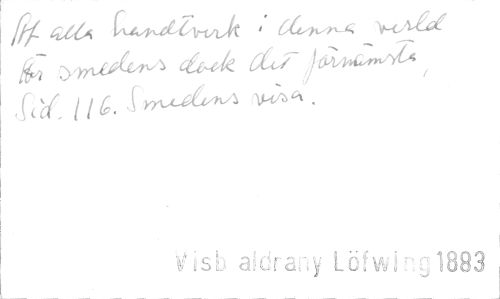 Af alla handtverk i denna verld
är smedens dock det förnämsta,
Sid. 116. Smedens visa.
Visb aldrany Löfwing 1883